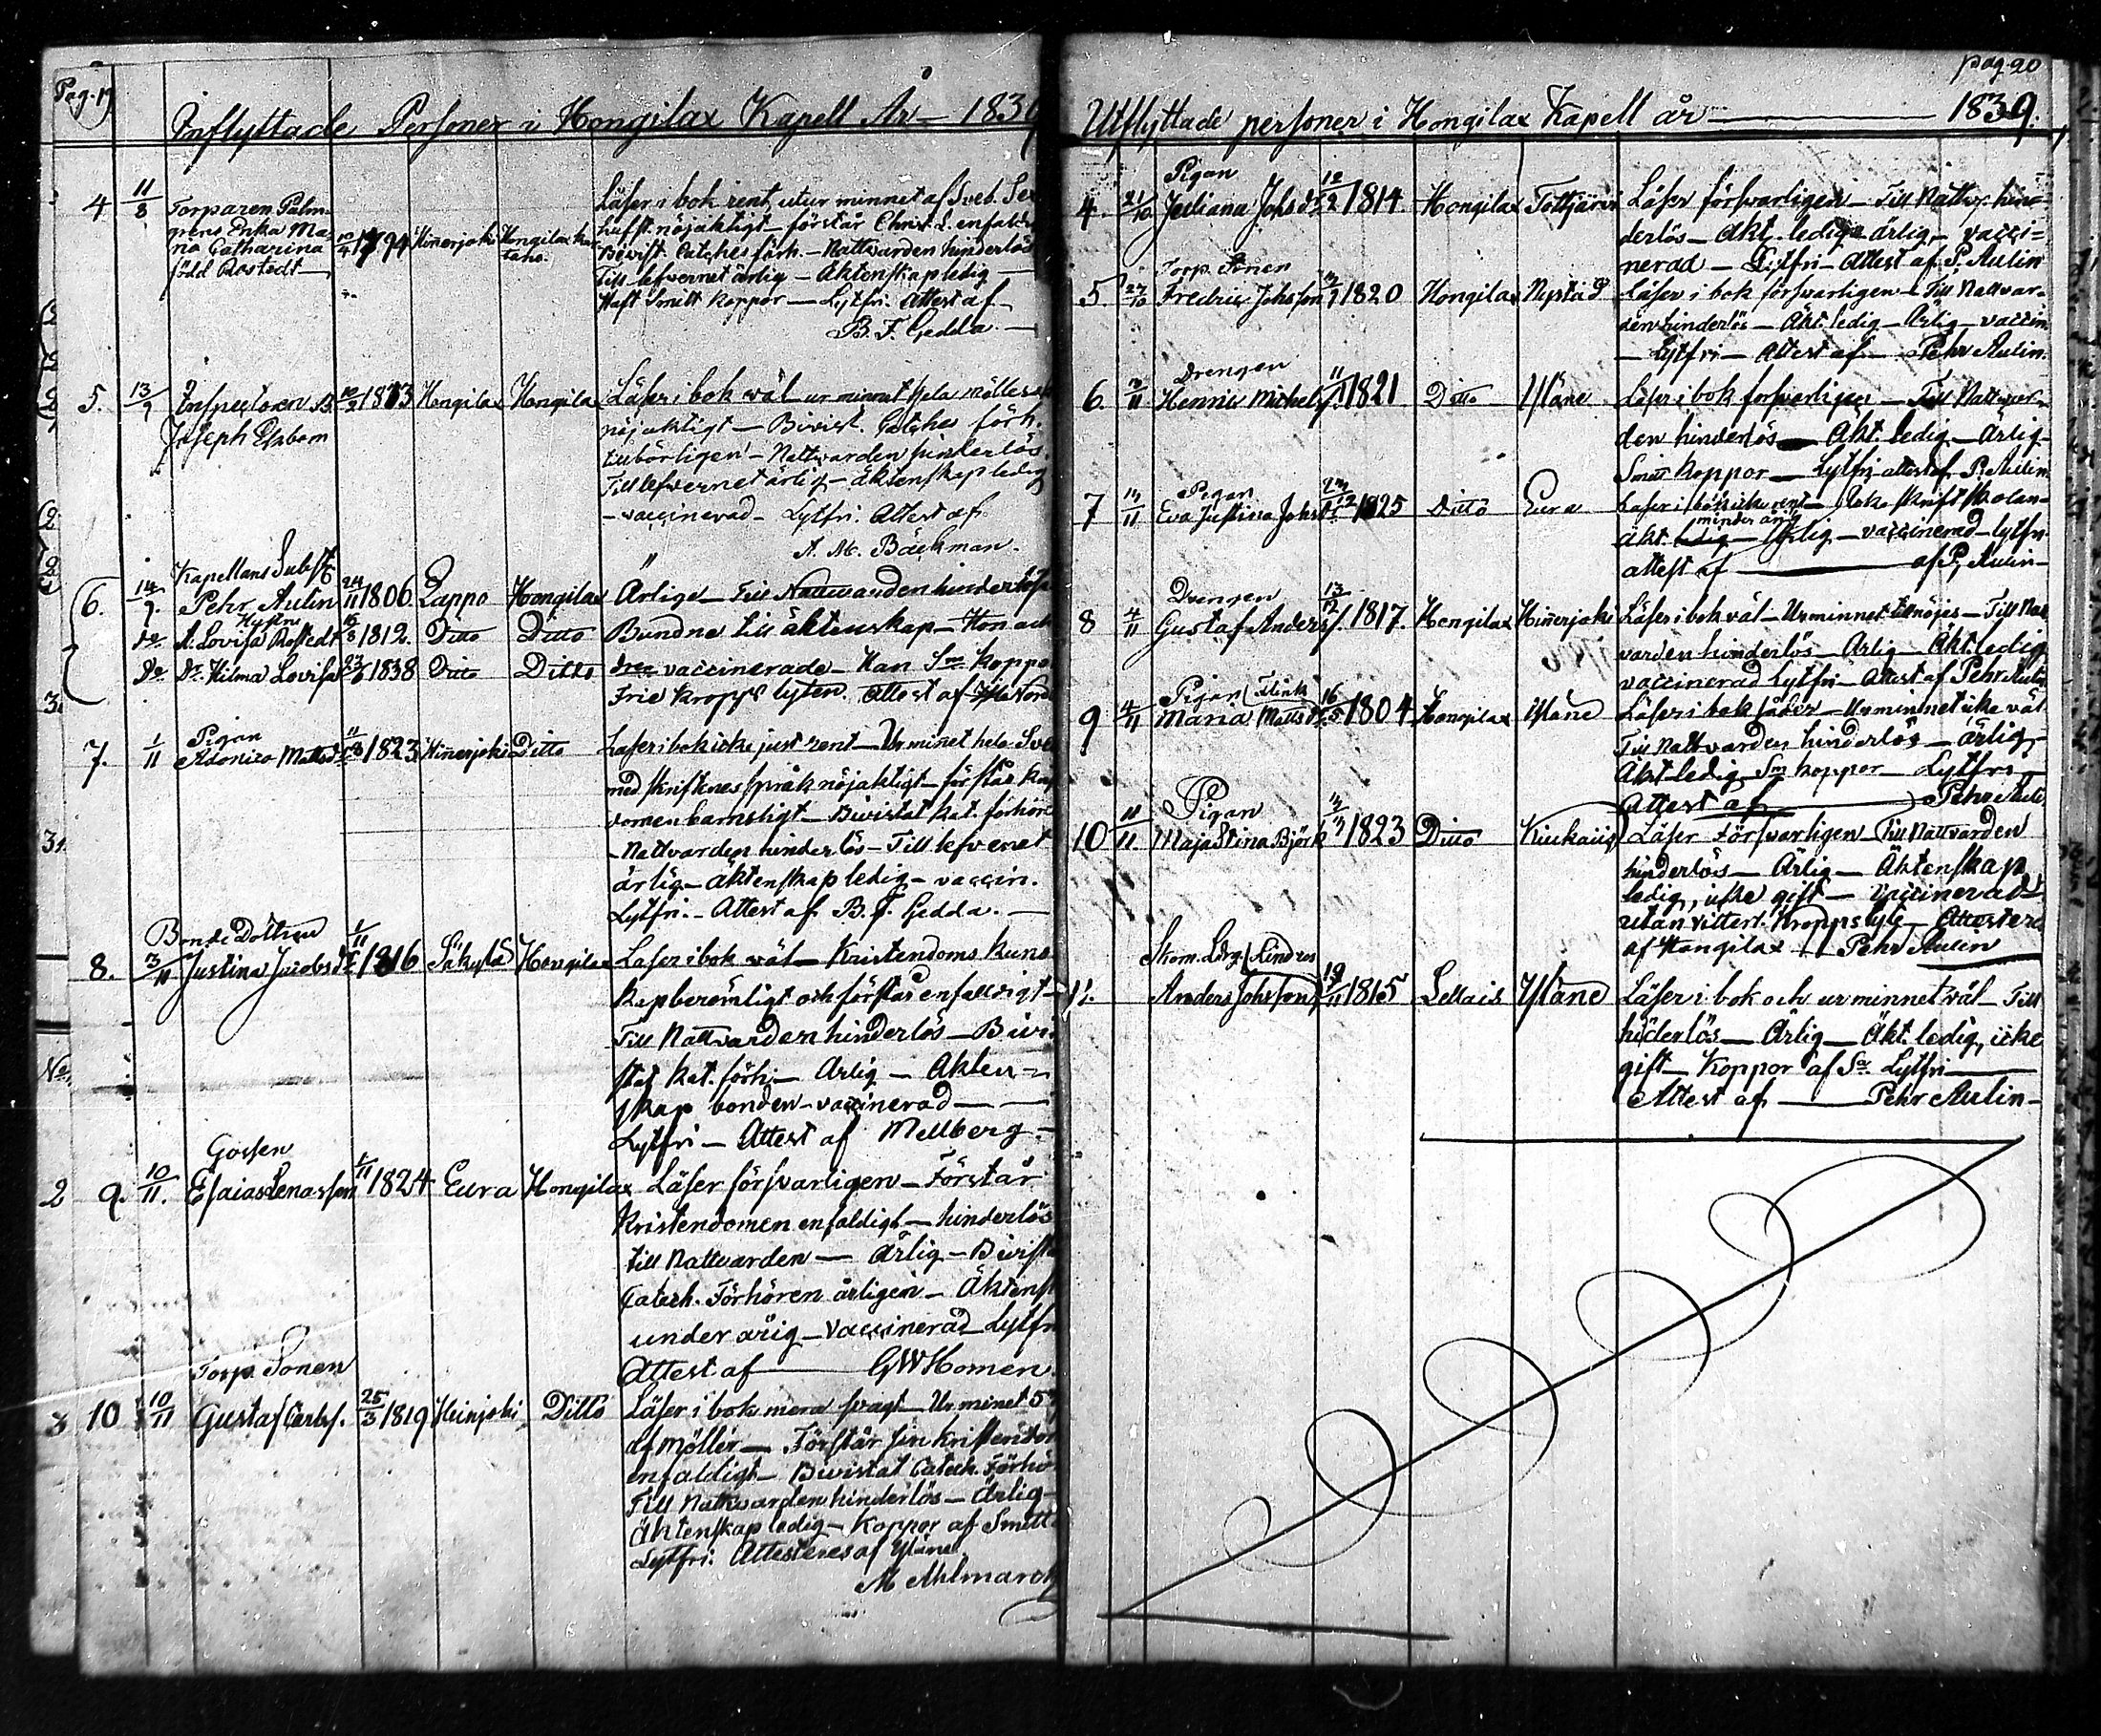 Pag. 19
Inflyttade Personer i Hongilax Kapell År 1839
4 11/8 Torparen Palm-
grens Enka Ma-
ria Catharina
född Rostedt 1794 Hinnerjoki Hongilax
Läser i bok rent, utur minnet af Sveb.
huft. nöjaktigt – förstår Christ. L. enfaldt
Bivist. Catches förh. – Nattvarden hinderlös
Till lefvernet ärlig – Äktenskap ledig –
Haft Smitt koppor – Lytfri. Attest af
B. F. Gedda. –
5. 13/9 Inspectoren
Joseph Elgbom 1813 Hongilax Hongilax
Läser i bok wäl ur minnet hela Mölles
nöjaktigt – Bivist. Catches förh.
tillbörligen – Nattvarden hinderlös
Till lefvernet ärlig – äktenskap ledig
– vaccinerad – Lytfri. Attest af
A. M. Bäckman.
6. 14/9. Kapellans Subst.
Pehr Aulin 24/11 1806 Lappo Hongilax Ärlige – Till Nattvarden hinderlösa
do. Hustru
A. Lovisa Rostedt 1812. Ditto Ditto Bundne till äktenskap – Hon och
do Dr. Hilma Lovisa 1838 Ditto Ditto vaccinerade – Han Sm. koppo
Frie kropps lyten. Attest af
7. 1/11 Pigan
Adonica Mattsdr 1823 Hinnerjoki Ditto Läser i bok icke just rent – Ur minet hela Sve
med skriftenes språk nöjaktigt – förstår kris
domen barnsligt – Bivistat kat. förhöre
– Nattvarden hinderlös – Till lefvenet
ärlig – äktenskap ledig – vaccin.
Lytfri. – Attest af B. F. Gedda. –
8. 3/11 Bonde Dottren
Justina Jacobsdr 1816 Säkylä Hongilax Läser i bok wäl – Kristendoms kuns
kap berömligt och förstår enfaldigt –
Till Nattvarden hinderlös – Bivi
stat Kat. förh. – Ärlig – Äkten-
skap bonden – vaccinerad –
Lytfri – Attest af Mellberg. –
2 9. 10/11. Gossen
Esaias Jenasson 1/11 1824 Eura Hongilax Läser försvarligen – Förstår
Kristendomen enfaldigt – hinderlös
till Nattvarden – Ärlig – Bivist
Catech. Förhören årligen – Äktensk
under årig – Vaccinerad – Lytfri
Attest af – G W Homen.
3 10 10/11 Torp. Sonen
Gustaf Carlss. 25/3 1819 Hinjoki Ditto Läser i bok mera svagt – Ur minet 5
af Möller – Förstår sin Kristendom
enfaldigt – Bivistat Catech. Förhö
Till Nattvarden hinderlös – Ärlig –
Äktenskap ledig – Koppor af Smitt
Lytfri. Attesteres af Yläne
M Ahlmarck
pag. 20
Utflyttade personer i Hongilax Kapell år – 1839.
4. 21/10 Pigan
Juliana Johsdr 12/2 1814. Hongilax Tottjärvi Läser försvarligen – Till Nattv. hin-
derlös – Äkt. ledig – ärlig – vacci-
nerad – Lytfri – Attest af P. Aulin
5. 27/10 Torp. Sonen
Fredric Johsson 1820 Hongilax Nystad Läser i bok försvarligen – Till Nattvar-
den hinderlös – Äkt. ledig – Ärlig – vaccin.
– Lytfri – Attest af – Pehr Aulin.
6. Drengen
Henric Michelss. 1821 Ditto Yläne Läser i bok forsvarligen – Till Nattvar-
den hinderlös – Äkt. ledig – Ärlig –
Smitt Koppor – Lytfri attest af P. Aulin
7 Pigan
Eva Justina Johsdr 1825 Ditto Eura Läser i bok icke rent – Gåt skriftskolan –
minder årig
Äkt. ledig – Ärlig – vaccinerad – lytfri
attest af – af P. Aulin –
8 4/11 Drengen
Gustaf Anderss. 13/12 1817. Hongilax Hinnerjoki Läser i bok wäl – Ur minnet till nöjes – Till Nat
varden hinderlös – Ärlig – Äkt ledig
vaccinerad Lytfri – Attest af Pehr Aulin
9 4/11 Pigan Flink
Maria Mattsdr 16/5 1804 Hongilax Yläne Läser i bok – Ur minnet icke väl
Till Nattvarden hinderlös – ärlig –
Äkt ledig Sm koppor – Lytfri –
Attest af – Pehr Aulin
10 11/11. Pigan
Maja Stina Björk 1823 Ditto Kiukais Läser Försvarligen – Till Nattvarden
hinderlös – Ärlig – Äktenskap
ledig, icke gift – vaccinerad
utan vitterl. Kroppslyte – Attesteres
af Hongilax – Pehr Aulin
11. Skom. Lärg. Lindros
Anders Johsson 19/11 1815 Lellais Yläne Läser i bok och ur minnet wäl – Till
hiderlös – Ärlig – Äkt. ledig, icke
gift – Koppor af Sm. Lytfri –
Attest af – Pehr Aulin –